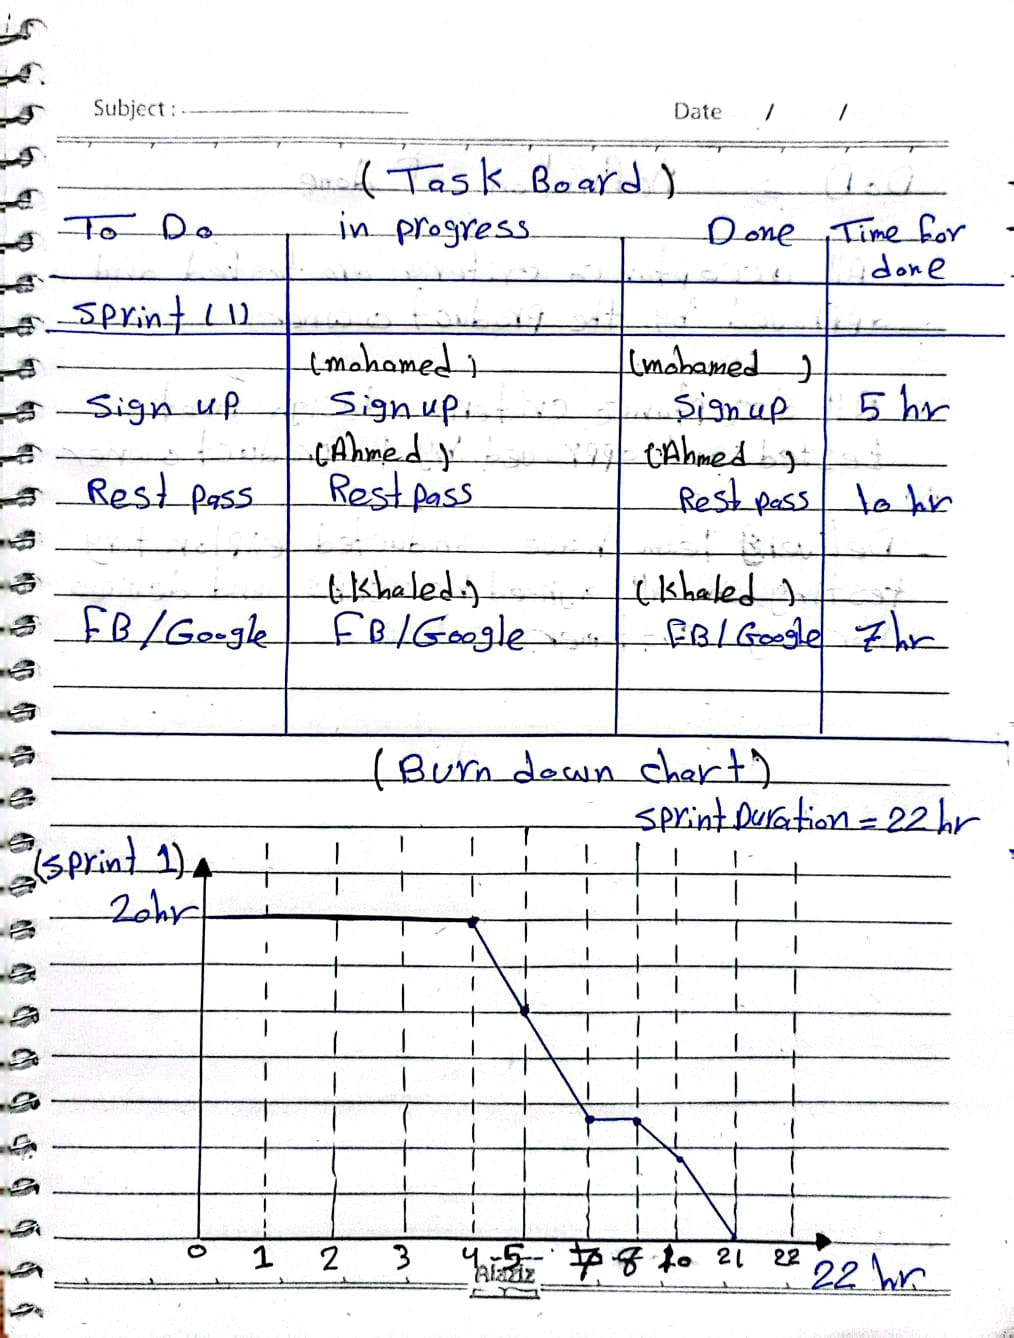 Subject :
Date / /
( Task Board )
To Do in progress Done Time for
done
Sprint (1)
(mohamed) (mohamed )
Sign up Sign up. Sign up 5 hr
(Ahmed) (Ahmed )
Rest pass Rest pass Rest pass 10 hr
(Khaled) (Khaled )
FB/Google FB/Google FB/Google 7 hr
(Burn down chart)
Sprint Duration = 22 hr
(sprint 1)
20hr
0 1 2 3 4 5 7 8 10 21 22
22 hr
Alaziz